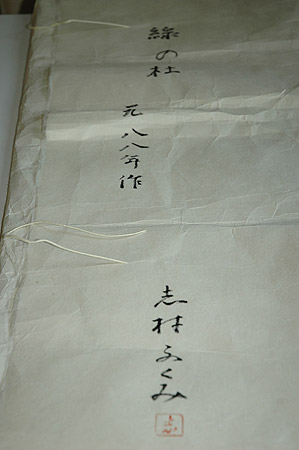 緑の杜
一九八八年作
志村ふくみ